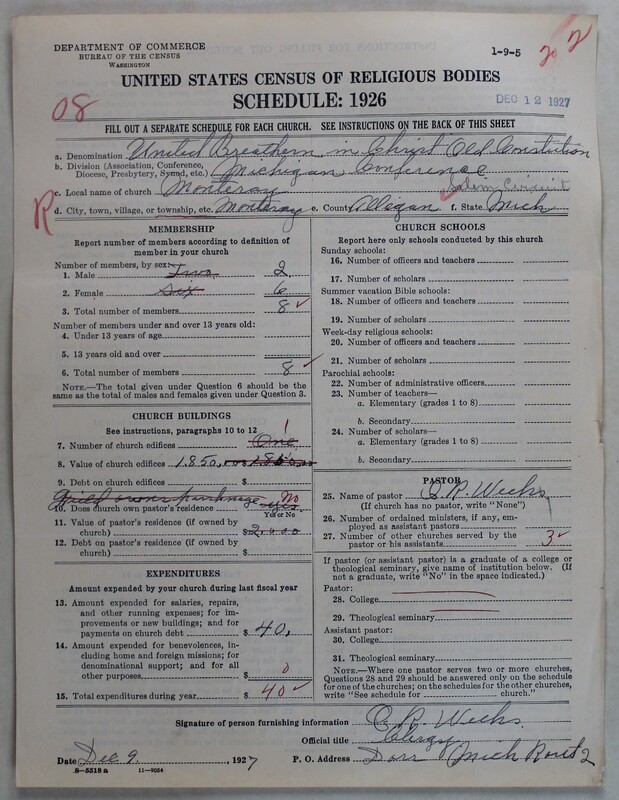 DEPARTMENT OF COMMERCE
BUREAU OF THE CENSUS
WASHINGTON
1-9-5
20 2
UNITED STATES CENSUS OF RELIGIOUS BODIES
SCHEDULE: 1926
DEC 12 1927
08
FILL OUT A SEPARATE SCHEDULE FOR EACH CHURCH. SEE INSTRUCTIONS ON THE BACK OF THIS SHEET
a. Denomination United Breathern in Christ Old Constution
b. Division (Association, Conference, Diocese, Presbytery, Synod, etc.) Michigan Conference
c. Local name of church Monteray Salem Circuit
R
d. City, town, village, or township, etc. Monteray e. County Allegan f. State Mich
MEMBERSHIP
Report number of members according to definition of
member in your church
Number of members, by sex:
1. Male Two 2
2. Female Six 6
3. Total number of members 8
Number of members under and over 13 years old:
4. Under 13 years of age
5. 13 years old and over
6. Total number of members 8
NOTE.—The total given under Question 6 should be
same as the total of males and females given under Question 3.
CHURCH BUILDINGS
See instructions, paragraphs 10 to 12
7. Number of church edifices One 1
8. Value of church edifices 1,850.
9. Debt on church edifices $
10. Does church own pastor's residence yes No
Yes or No
11. Value of pastor's residence (if owned by
church) $
12. Debt on pastor's residence (if owned by
church) $
EXPENDITURES
Amount expended by your church during last fiscal year
13. Amount expended for salaries, repairs,
and other running expenses; for im-
provements or new buildings; and for
payments on church debt $ 40.
14. Amount expended for benevolences, in-
cluding home and foreign missions; for
denominational support; and for all
other purposes $ 0
15. Total expenditures during year $ 40
CHURCH SCHOOLS
Report here only schools conducted by this church
Sunday schools:
16. Number of officers and teachers
17. Number of scholars
Summer vacation Bible schools:
18. Number of officers and teachers
19. Number of scholars
Week-day religious schools:
20. Number of officers and teachers
21. Number of scholars
Parochial schools:
22. Number of administrative officers
23. Number of teachers—
a. Elementary (grades 1 to 8)
b. Secondary
24. Number of scholars—
a. Elementary (grades 1 to 8)
b. Secondary
PASTOR
25. Name of pastor O. R. Weeks
(If church has no pastor, write "None")
26. Number of ordained ministers, if any, em-
ployed as assistant pastors
27. Number of other churches served by the
pastor or his assistants 3
If pastor (or assistant pastor) is a graduate of a college or
theological seminary, give name of institution below. (If
not a graduate, write "No" in the space indicated.)
Pastor:
28. College
29. Theological seminary
Assistant pastor:
30. College
31. Theological seminary
NOTE.—Where one pastor serves two or more churches,
Questions 28 and 29 should be answered only on the schedule
for one of the churches; on the schedules for the other churches,
write "See schedule for church."
Signature of person furnishing information O. R. Weeks
Official title Clergy
Date Dec 9, 1927 P. O. Address Dorr Mich Rout 2
8-5518 a 11-9054